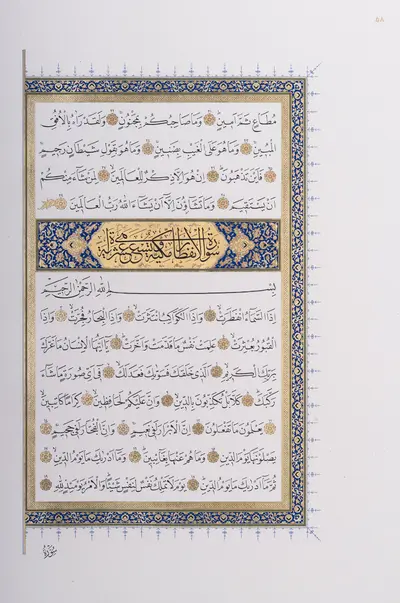 ٥٨
مُطَاعٍ ثَمَّ اَمِينٍ وَمَا صَاحِبُكُمْ بِمَجْنُونٍ وَلَقَدْ رَاٰهُ بِالْاُفُقِ
الْمُبِينِ وَمَا هُوَ عَلَى الْغَيْبِ بِضَنِينٍ وَمَا هُوَ بِقَوْلِ شَيْطَانٍ رَجِيمٍ
فَاَيْنَ تَذْهَبُونَ اِنْ هُوَ اِلَّا ذِكْرٌ لِلْعَالَمِينَ لِمَنْ شَاءَ مِنْكُمْ
اَنْ يَسْتَقِيمَ وَمَا تَشَاؤُنَ اِلَّا اَنْ يَشَاءَ اللّٰهُ رَبُّ الْعَالَمِينَ
سورة الانفطار مكية وهي تسع عشرة آية
بِسْمِ اللّٰهِ الرَّحْمٰنِ الرَّحِيمِ
اِذَا السَّمَاءُ انْفَطَرَتْ وَاِذَا الْكَوَاكِبُ انْتَثَرَتْ وَاِذَا الْبِحَارُ فُجِّرَتْ وَاِذَا
الْقُبُورُ بُعْثِرَتْ عَلِمَتْ نَفْسٌ مَا قَدَّمَتْ وَاَخَّرَتْ يَا اَيُّهَا الْاِنْسَانُ مَا غَرَّكَ
بِرَبِّكَ الْكَرِيمِ اَلَّذِي خَلَقَكَ فَسَوّٰيكَ فَعَدَلَكَ فِي اَيِّ صُورَةٍ مَا شَاءَ
رَكَّبَكَ كَلَّا بَلْ تُكَذِّبُونَ بِالدِّينِ وَاِنَّ عَلَيْكُمْ لَحَافِظِينَ كِرَامًا كَاتِبِينَ
يَعْلَمُونَ مَا تَفْعَلُونَ اِنَّ الْاَبْرَارَ لَفِي نَعِيمٍ وَاِنَّ الْفُجَّارَ لَفِي جَحِيمٍ
يَصْلَوْنَهَا يَوْمَ الدِّينِ وَمَا هُمْ عَنْهَا بِغَائِبِينَ وَمَا اَدْرٰيكَ مَا يَوْمُ الدِّينِ
ثُمَّ مَا اَدْرٰيكَ مَا يَوْمُ الدِّينِ يَوْمَ لَا تَمْلِكُ نَفْسٌ لِنَفْسٍ شَيْئًا وَالْاَمْرُ يَوْمَئِذٍ لِلّٰهِ
سورة